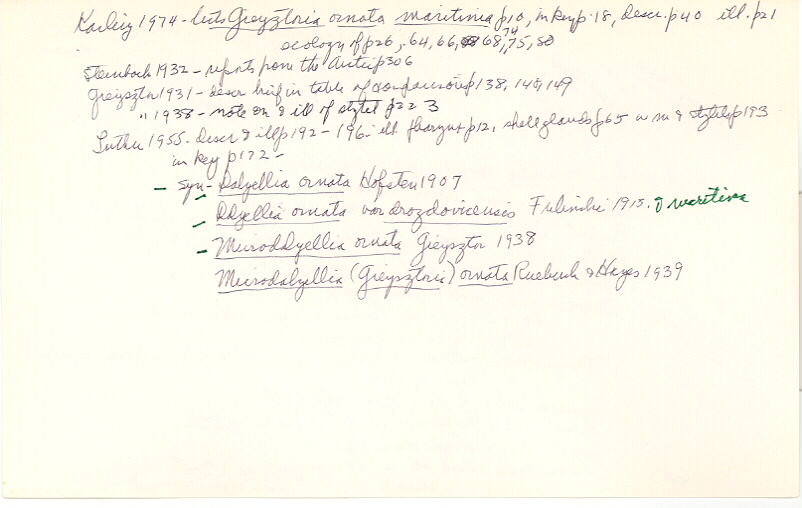 Karling 1974 - lists Gieysztoria ornata maritima p10, in key p.18, descr. p40 ill. p21
ecology of p26, 64, 66, 68, 74, 75, 80
Steinbock 1932 - reports from the Arctic p306
Gieysztor 1931 - descr brief in table of comparison p138, 145, 149
" 1938 - note on & ill of stylet p22 3
Luther 1955 - Descr & ill p192 - 196 - ill pharynx p12, shell glands p65 w m & stylets p193
in key p172 -
- syn - Dalyellia ornata Hofsten 1907
- Dalyellia ornata var drozdovicensis Fulinski 1915. & maritima
- Microdalyellia ornata Gieysztor 1938
Microdalyellia (Gieysztoria) ornata Ruebush & Hayes 1939